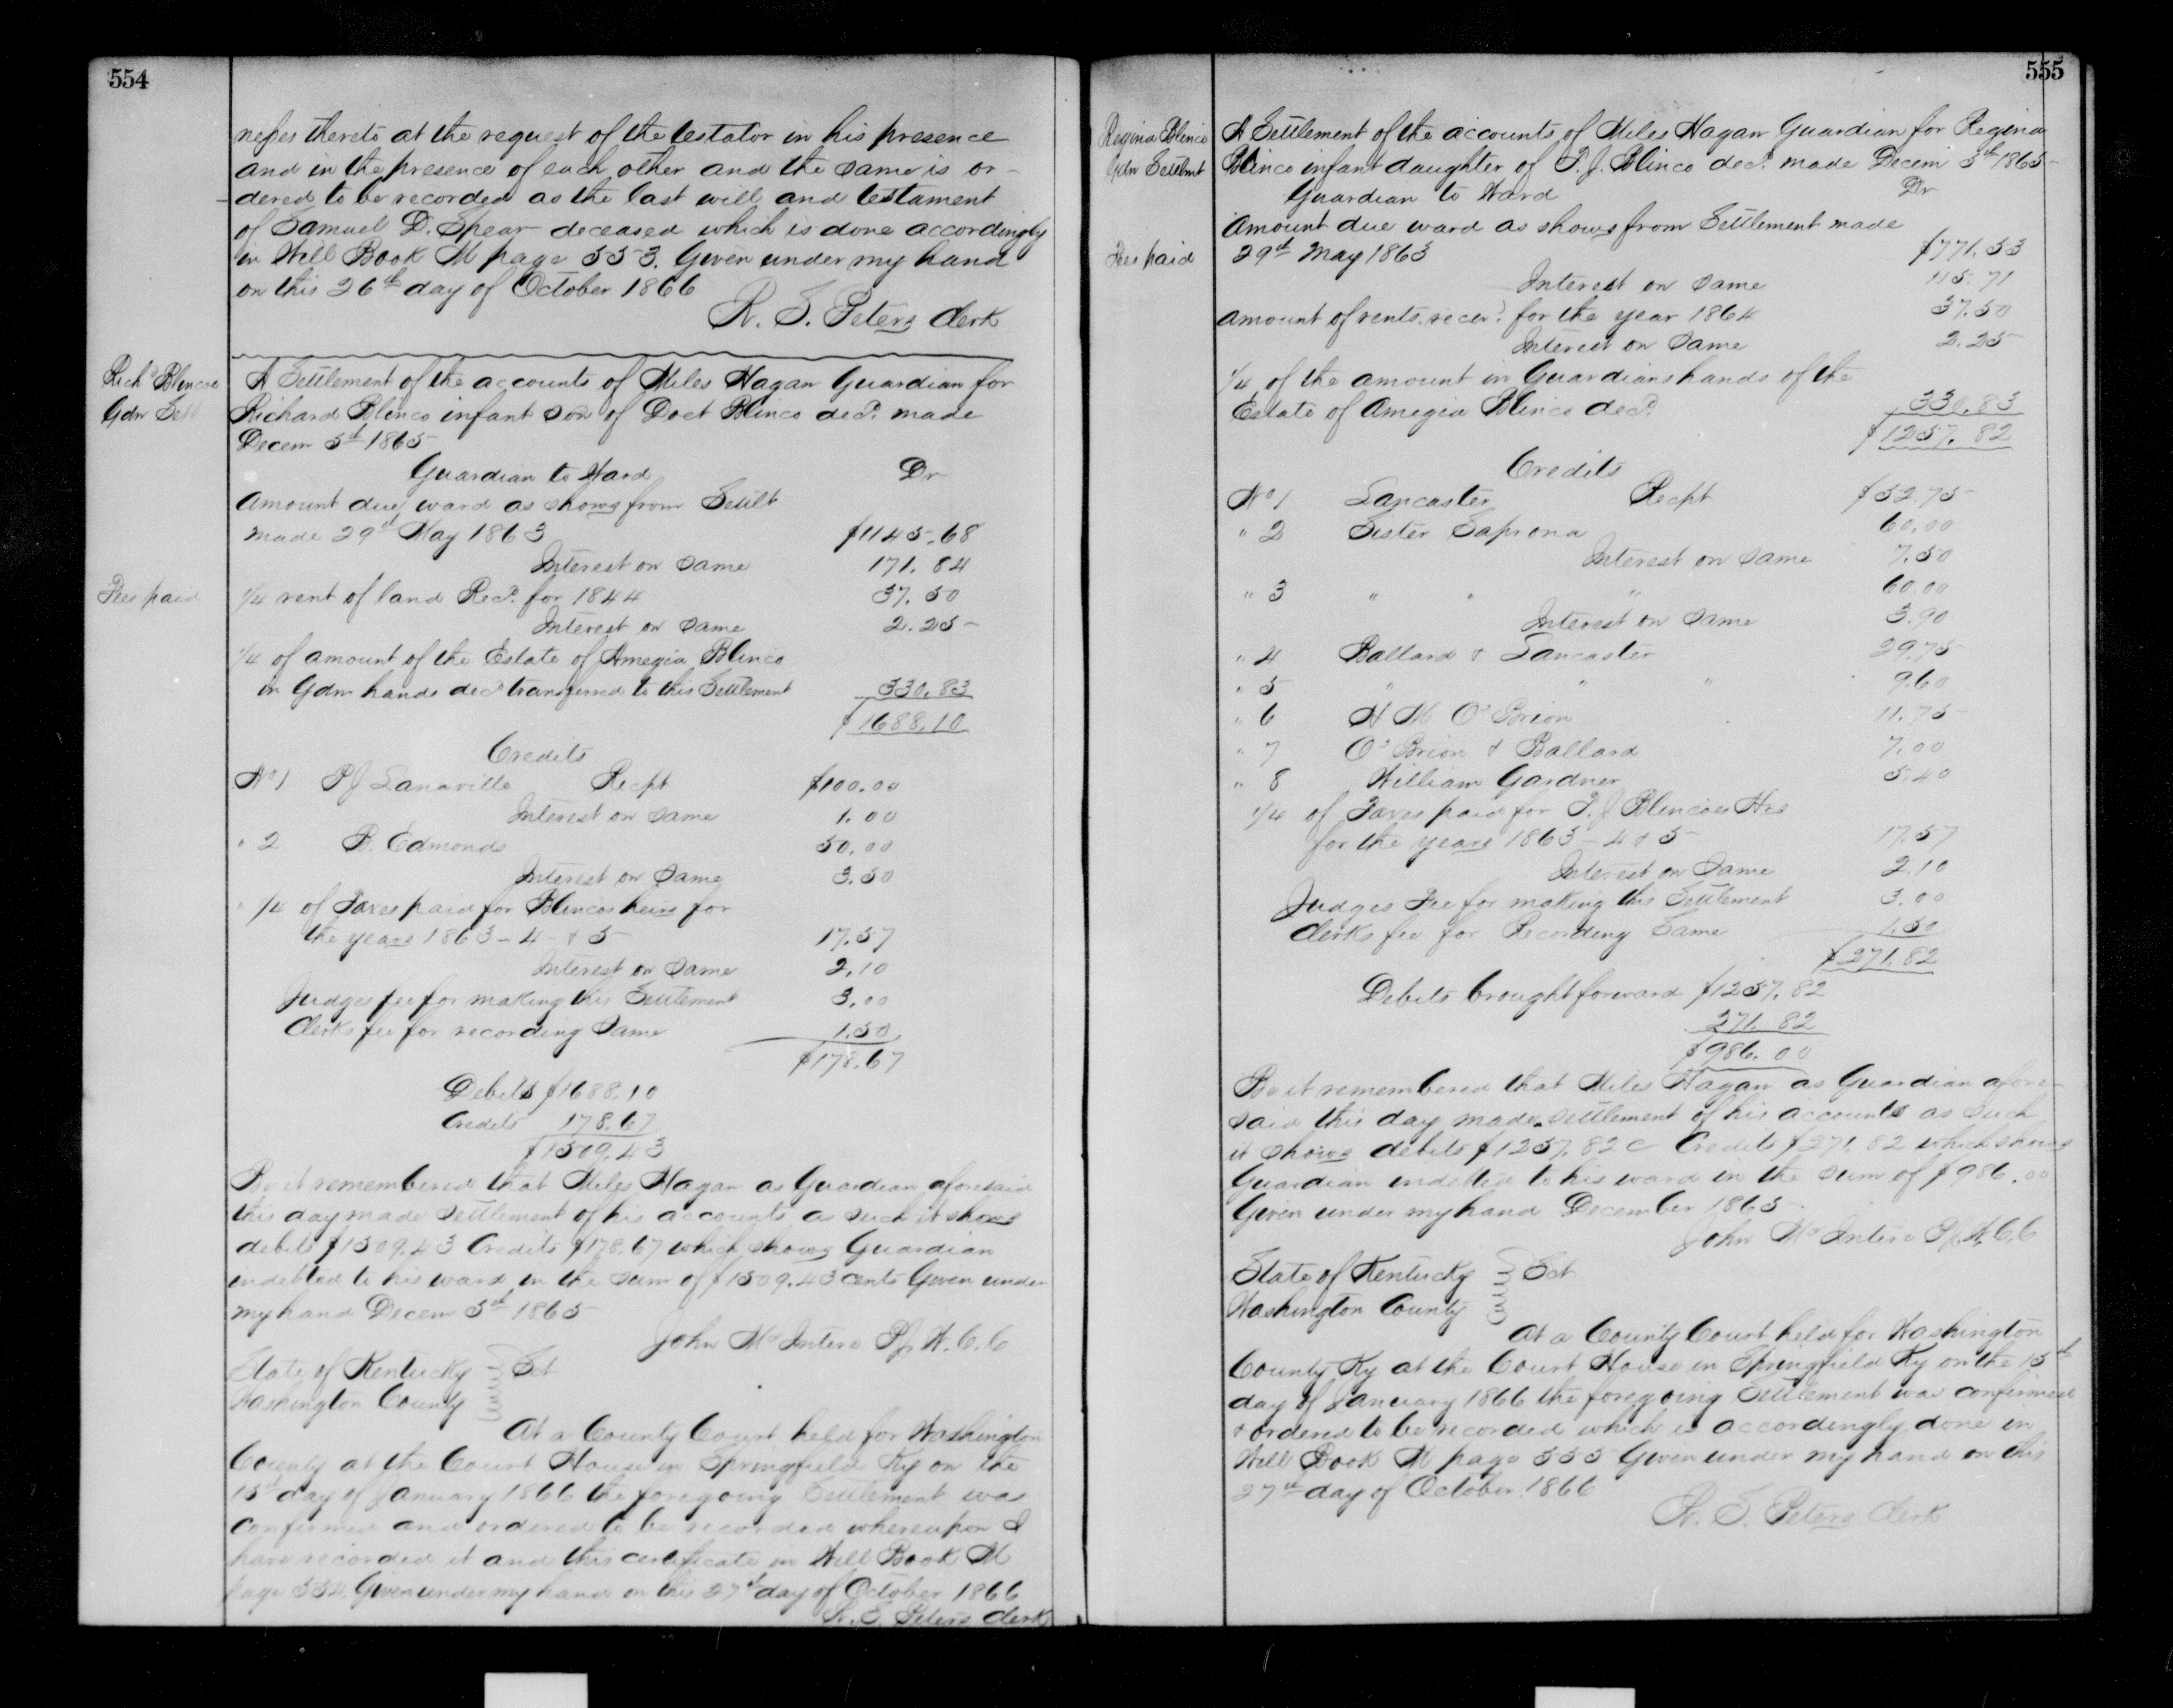 554
nesses thereto at the request of the testator in his presence
and in the presence of each other and the same is or-
dered to be recorded as the last will and testament
of Samuel D. Spear deceased which is done accordingly
in Will Book M page 553. Given under my hand
on this 26th day of October 1866
R. S. Peters Clerk
Richd Blincoe
Gdn Sett
A Settlement of the accounts of Miles Hagan Guardian for
Richard Blinco infant son of Doct Blinco decd. made
Decem 5th 1865
Guardian to Ward Dr
Amount due ward as shows from Settlt
made 29th May 1863 $1145.68
Interest on same 171.84
Fees paid
1/4 rent of land Recd. for 1844 37.50
Interest on same 2.25
1/4 of amount of the Estate of Amegia Blinco
in Gdn hands decd transferred to this Settlement 330.83
$1688.10
Credits
No 1 P J Lanaville Recpt $100.00
Interest on same 1.00
" 2 B. Edmonds 50.00
Interest on same 3.50
" 1/4 of Taxes paid for Blincos heirs for
the years 1863-4-&5 17.57
Interest on same 2.10
Judges fee for making this Settlement 3.00
Clerks fee for recording Same 1.50
$178.67
Debits $1688.10
Credits 178.67
$1509.43
Be it remembered that Miles Hagan as Guardian aforesaid
this day made settlement of his accounts as such it shows
debits $1509.43 Credits $178.67 which shows Guardian
indebted to his ward in the sum of $1509.43 cents Given under
my hand Decem 5th 1865
John McIntire PJ W.C.C
State of Kentucky Sct
Washington County
At a County Court held for Washington
County at the Court House in Springfield Ky on the
15th day of January 1866 the foregoing Settlement was
confirmed and ordered to be recorded whereupon I
have recorded it and this certificate in Will Book M
page 554. Given under my hand on this 27th day of October 1866
R. S. Peters Clerk
555
Regina Blinco
Gdn Settlmt
A Settlement of the accounts of Miles Hagan Guardian for Regina
Blinco infant daughter of T. J. Blinco decd. made Decem 5th 1865
Guardian to Ward Dr
Amount due ward as shows from Settlement made
Fees paid
29th May 1863 $771.53
Interest on same 115.71
Amount of rents recev.d for the year 1864 37.50
Interest on same 2.25
1/4 of the amount in Guardians hands of the
Estate of Amegia Blinco decd. 330.83
$1257.82
Credits
No 1 Lancaster Recpt $52.75
" 2 Sister Saprona 60.00
Interest on same 7.50
" 3 " " " 60.00
Interest on same 3.90
" 4 Ballard & Lancaster 29.75
" 5 " " " 9.60
" 6 H M O'Brion 11.75
" 7 O'Brion & Ballard 7.00
" 8 William Gardner 5.40
1/4 of Taxes paid for T. J Blincoes Hrs
for the years 1863-4&5 17.57
Interest on Same 2.10
Judges Fee for making this Settlement 3.00
Clerks fee for Recording Same 1.50
$271.82
Debits brought forward $1257.82
271.82
$986.00
Be it remembered that Miles Hagan as Guardian afore-
said this day made settlement of his accounts as such
it shows debits $1257.82 c Credits $271.82 which shows
Guardian indebted to his ward in the sum of $986.00
Given under my hand December 1865
John McIntire PJ W.C.C
State of Kentucky Sct
Washington County
At a County Court held for Washington
County Ky at the Court House in Springfield Ky on the 15th
day of January 1866 the foregoing Settlement was confirmed
& ordered to be recorded which is accordingly done in
Will Book M page 555 Given under my hand on this
27th day of October 1866
R. S. Peters Clerk